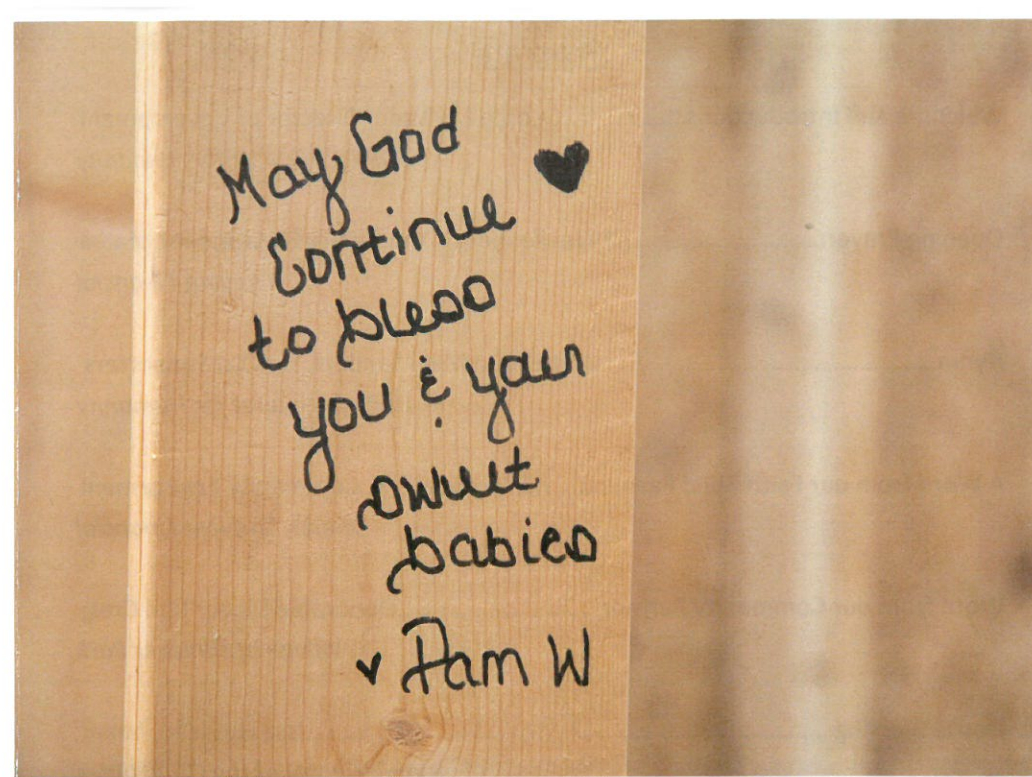 May God
Continue ♥
to bless
you & your
sweet
babies
♥ Pam W